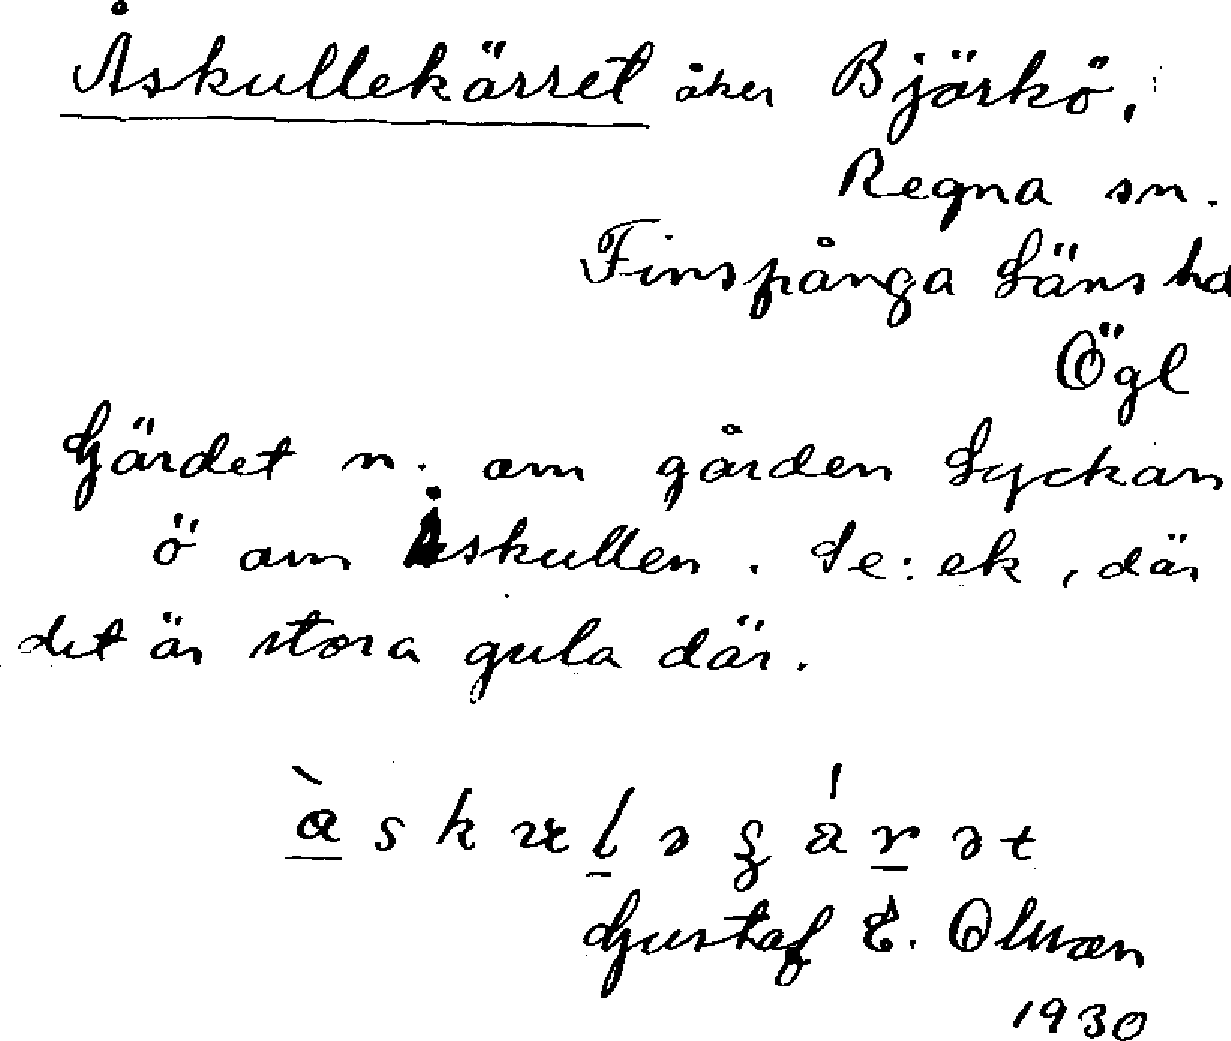 Åskullekärret åker Björkö,
Regna sn.
Finspånga Läns hd
Ögl
Gärdet n. om gården Lyckan
ö om Åskullen. Se: ek, där
det är stora gula där.
Gustaf E. Olsson
1930